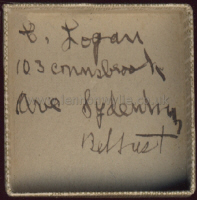 E. Logan
103 Connsbrook
Ave Sydenham
Belfast